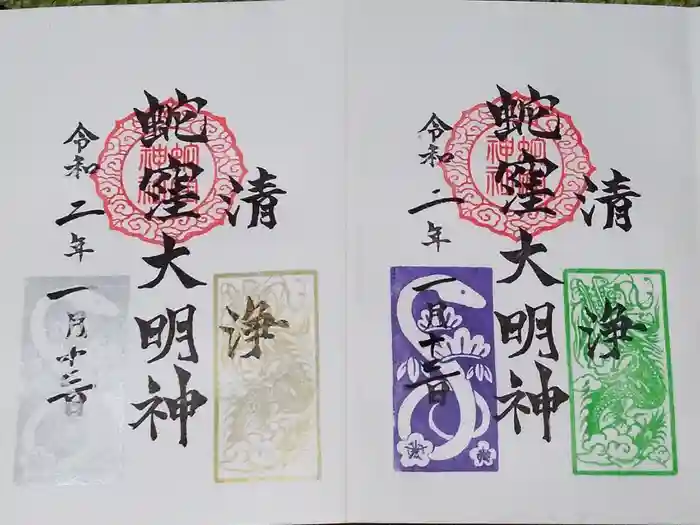 清
浄
蛇窪大明神
令和二年一月十三日
清
浄
蛇窪大明神
令和二年一月十三日